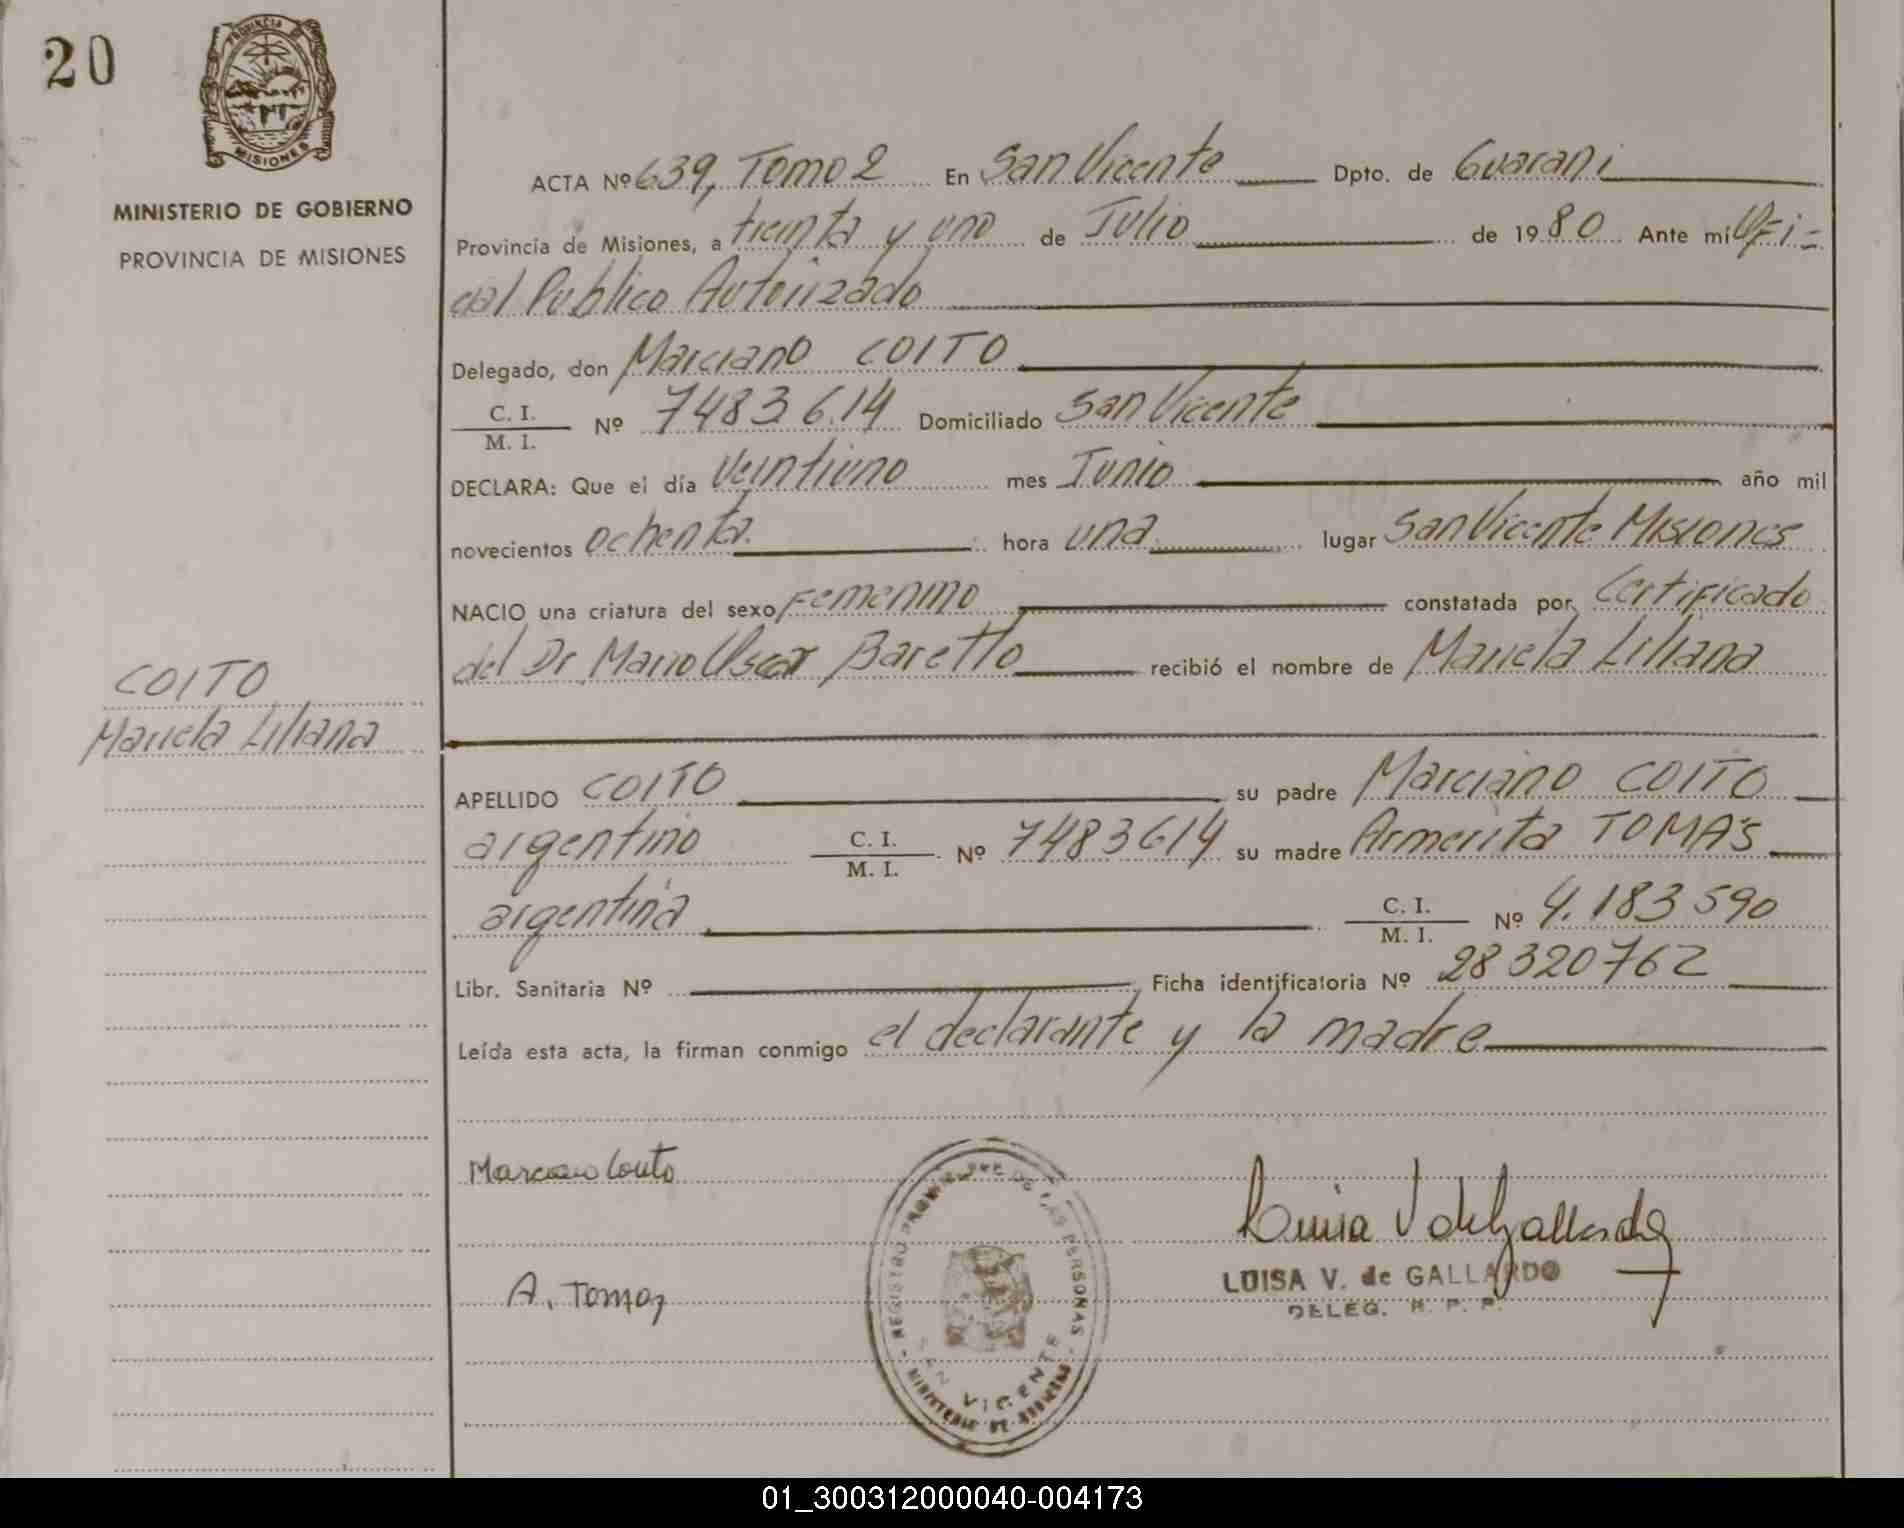 20
PROVINCIA DE
MISIONES
MINISTERIO DE GOBIERNO
PROVINCIA DE MISIONES
COITO
Mariela Liliana
ACTA Nº 639, Tomo 2 En San Vicente Dpto. de Guarani
Provincia de Misiones, a treinta y uno de Julio de 1980 Ante mi Ofi-
cial Publico Autorizado
Delegado, don Marciano COITO
C. I.
M. I. Nº 7483614 Domiciliado San Vicente
DECLARA: Que el día veintiuno mes Junio año mil
novecientos ochenta hora una lugar San Vicente Misiones
NACIO una criatura del sexo Femenino constatada por Certificado
del Dr. Mario Oscar Baretto recibió el nombre de Mariela Liliana
APELLIDO COITO su padre Marciano COITO
argentino C. I.
M. I. Nº 7483614 su madre Armerita TOMAS
argentina C. I.
M. I. Nº 4.183590
Libr. Sanitaria Nº Ficha identificatoria Nº 28320762
Leída esta acta, la firman conmigo el declarante y la madre
Marciano Couto
A. Tomaz
REGISTRO PROVINCIAL DE LAS PERSONAS
SAN VICENTE
MINISTERIO DE GOBIERNO
Luisa V de Gallardo
LUISA V. de GALLARDO
DELEG. R. P. P.
01_300312000040-004173